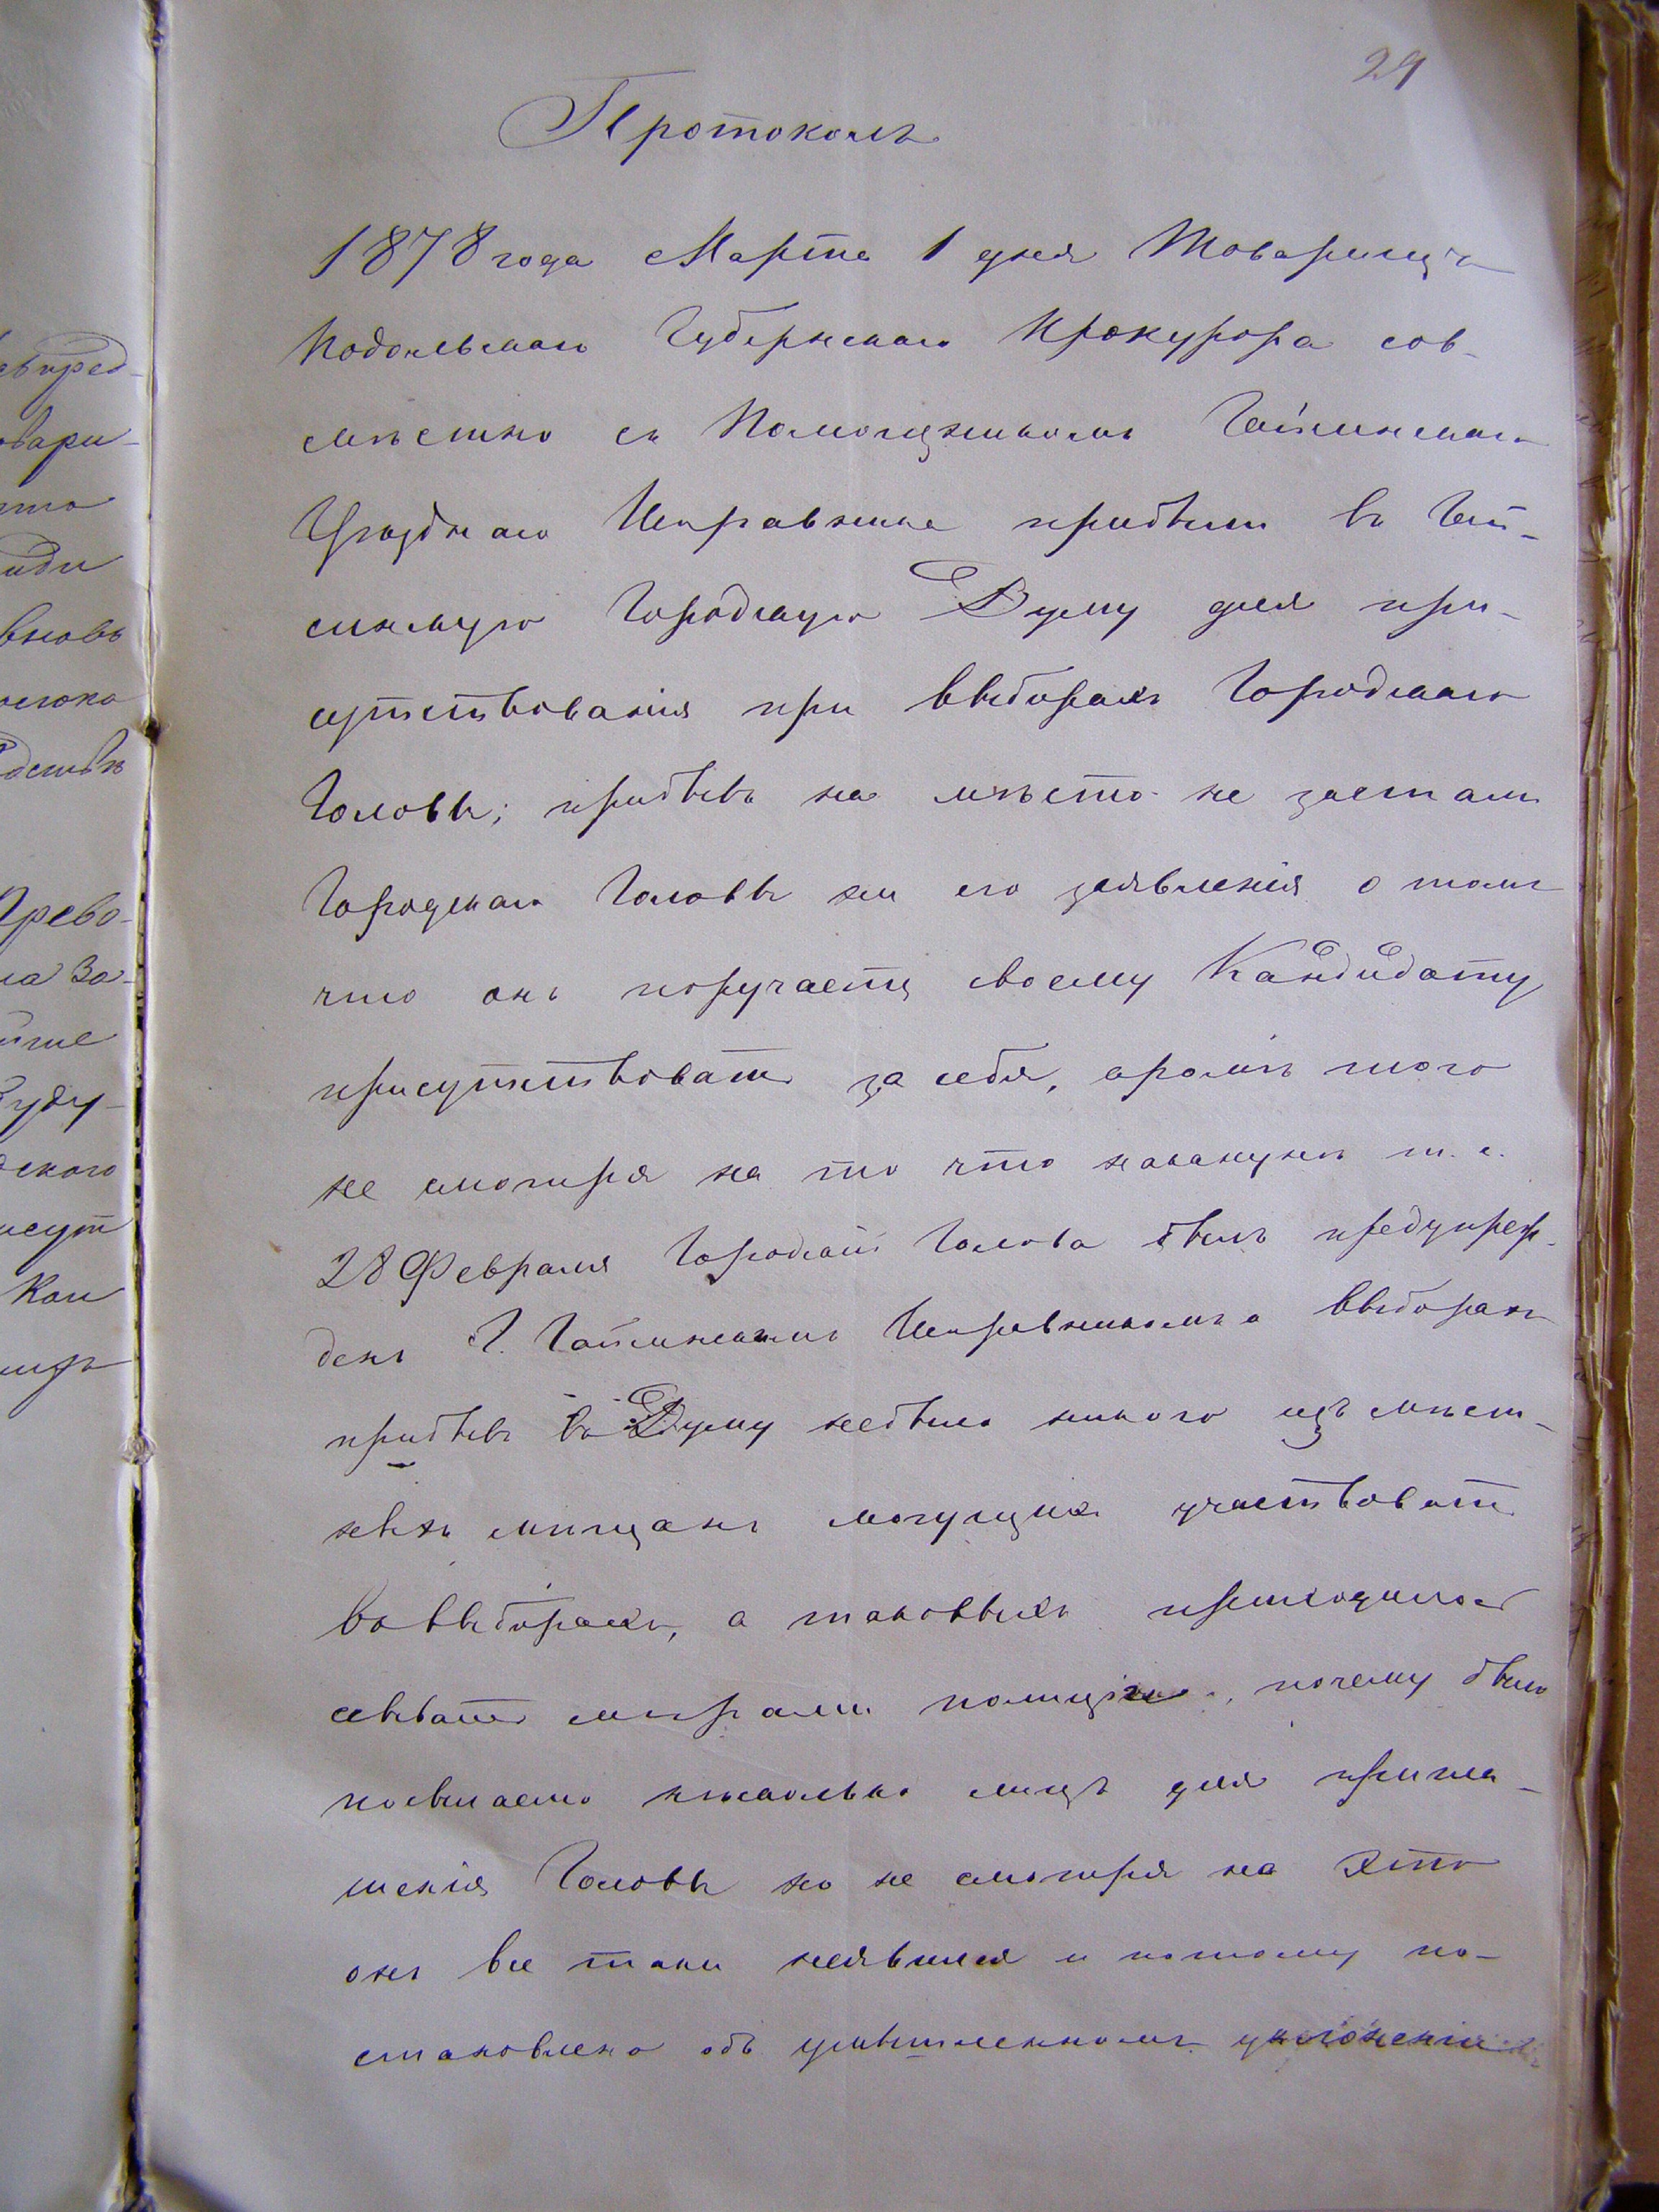 29
Протоколъ
1878 года Марта 1 дня Товарищъ
Подольскаго Губернскаго Прокурора сов-
мѣстно съ Помощникомъ Гайсинскаго
Уѣзднаго Исправника прибыли въ Гай-
синскую Городскую Думу для при-
сутствованія при выборахъ Городскаго
Головы; прибывъ на мѣсто не застали
Городскаго Головы ни его заявленія о томъ
что онъ поручаетъ своему Кандидату
присутствовать за себя, кромѣ того
не смотря на то что наканунѣ т. е.
28 Февраля Городской Голова былъ предупреж-
денъ Г. Гайсинскимъ Исправникомъ о выборахъ
прибывъ въ Думу небыло никого изъ мѣст-
ныхъ мѣщанъ могущихъ участвовать
въ выборахъ, а таковыхъ приходилось
сзывать мѣрами полиціи, почему было
посылаемо нѣсколько лицъ для пригла-
шенія Головы но не смотря на это
онъ все таки неявился и потому по-
становлено объ умышленномъ уклоненіи
евпред-
овари-
что
иди
вновь
Прево-
ла За-
Буду-
дскаго
исут
Кан